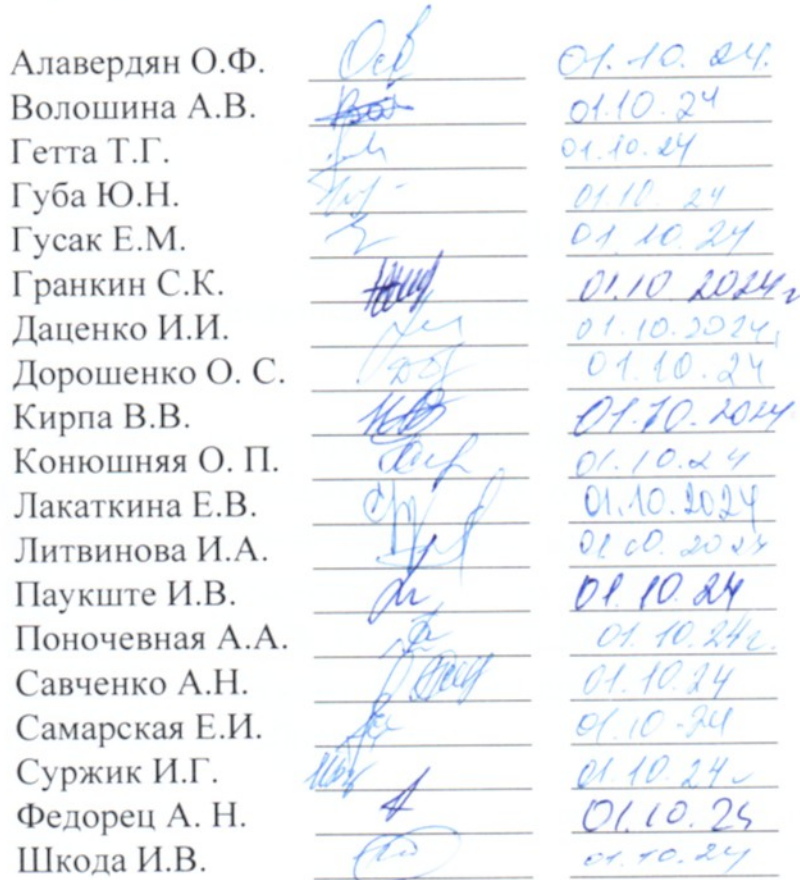 Алавердян О.Ф. 01.10.24.
Волошина А.В. 01.10.24
Гетта Т.Г. 01.10.24
Губа Ю.Н. 01.10.24
Гусак Е.М. 01.10.24
Гранкин С.К. 01.10 2024г
Даценко И.И. 01.10.2024
Дорошенко О. С. 01.10.24
Кирпа В.В. 01.10.2024
Конюшняя О. П. 01.10.24
Лакаткина Е.В. 01.10.2024
Литвинова И.А. 01.10.2024
Паукште И.В. 01.10.24
Поночевная А.А. 01.10.24г.
Савченко А.Н. 01.10.24
Самарская Е.И. 01.10.24
Суржик И.Г. 01.10.24
Федорец А. Н. 01.10.24
Шкода И.В. 01.10.24